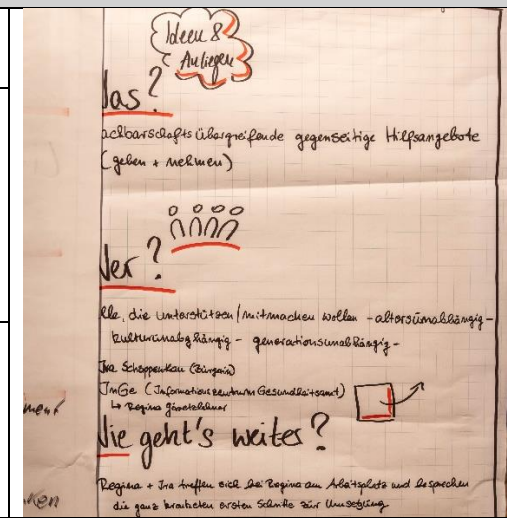 Ideen &
Anliegen
Was?
achbarschaftsübergreifende gegenseitige Hilfsangebote
(geben + nehmen)
Wer?
lle, die unterstützen/mitmachen wollen - altersunabhängig -
kulturunabhängig - generationsunabhängig -
Ira Schoppenkau (Bürgerin)
InGe (Informationszentrum Gesundheitsamt)
↳ Regina
Wie geht's weiter?
Regina + Ira treffen sich bei Regina am Arbeitsplatz und besprechen
die ganz konkreten ersten Schritte zur Umsetzung
ment
ken